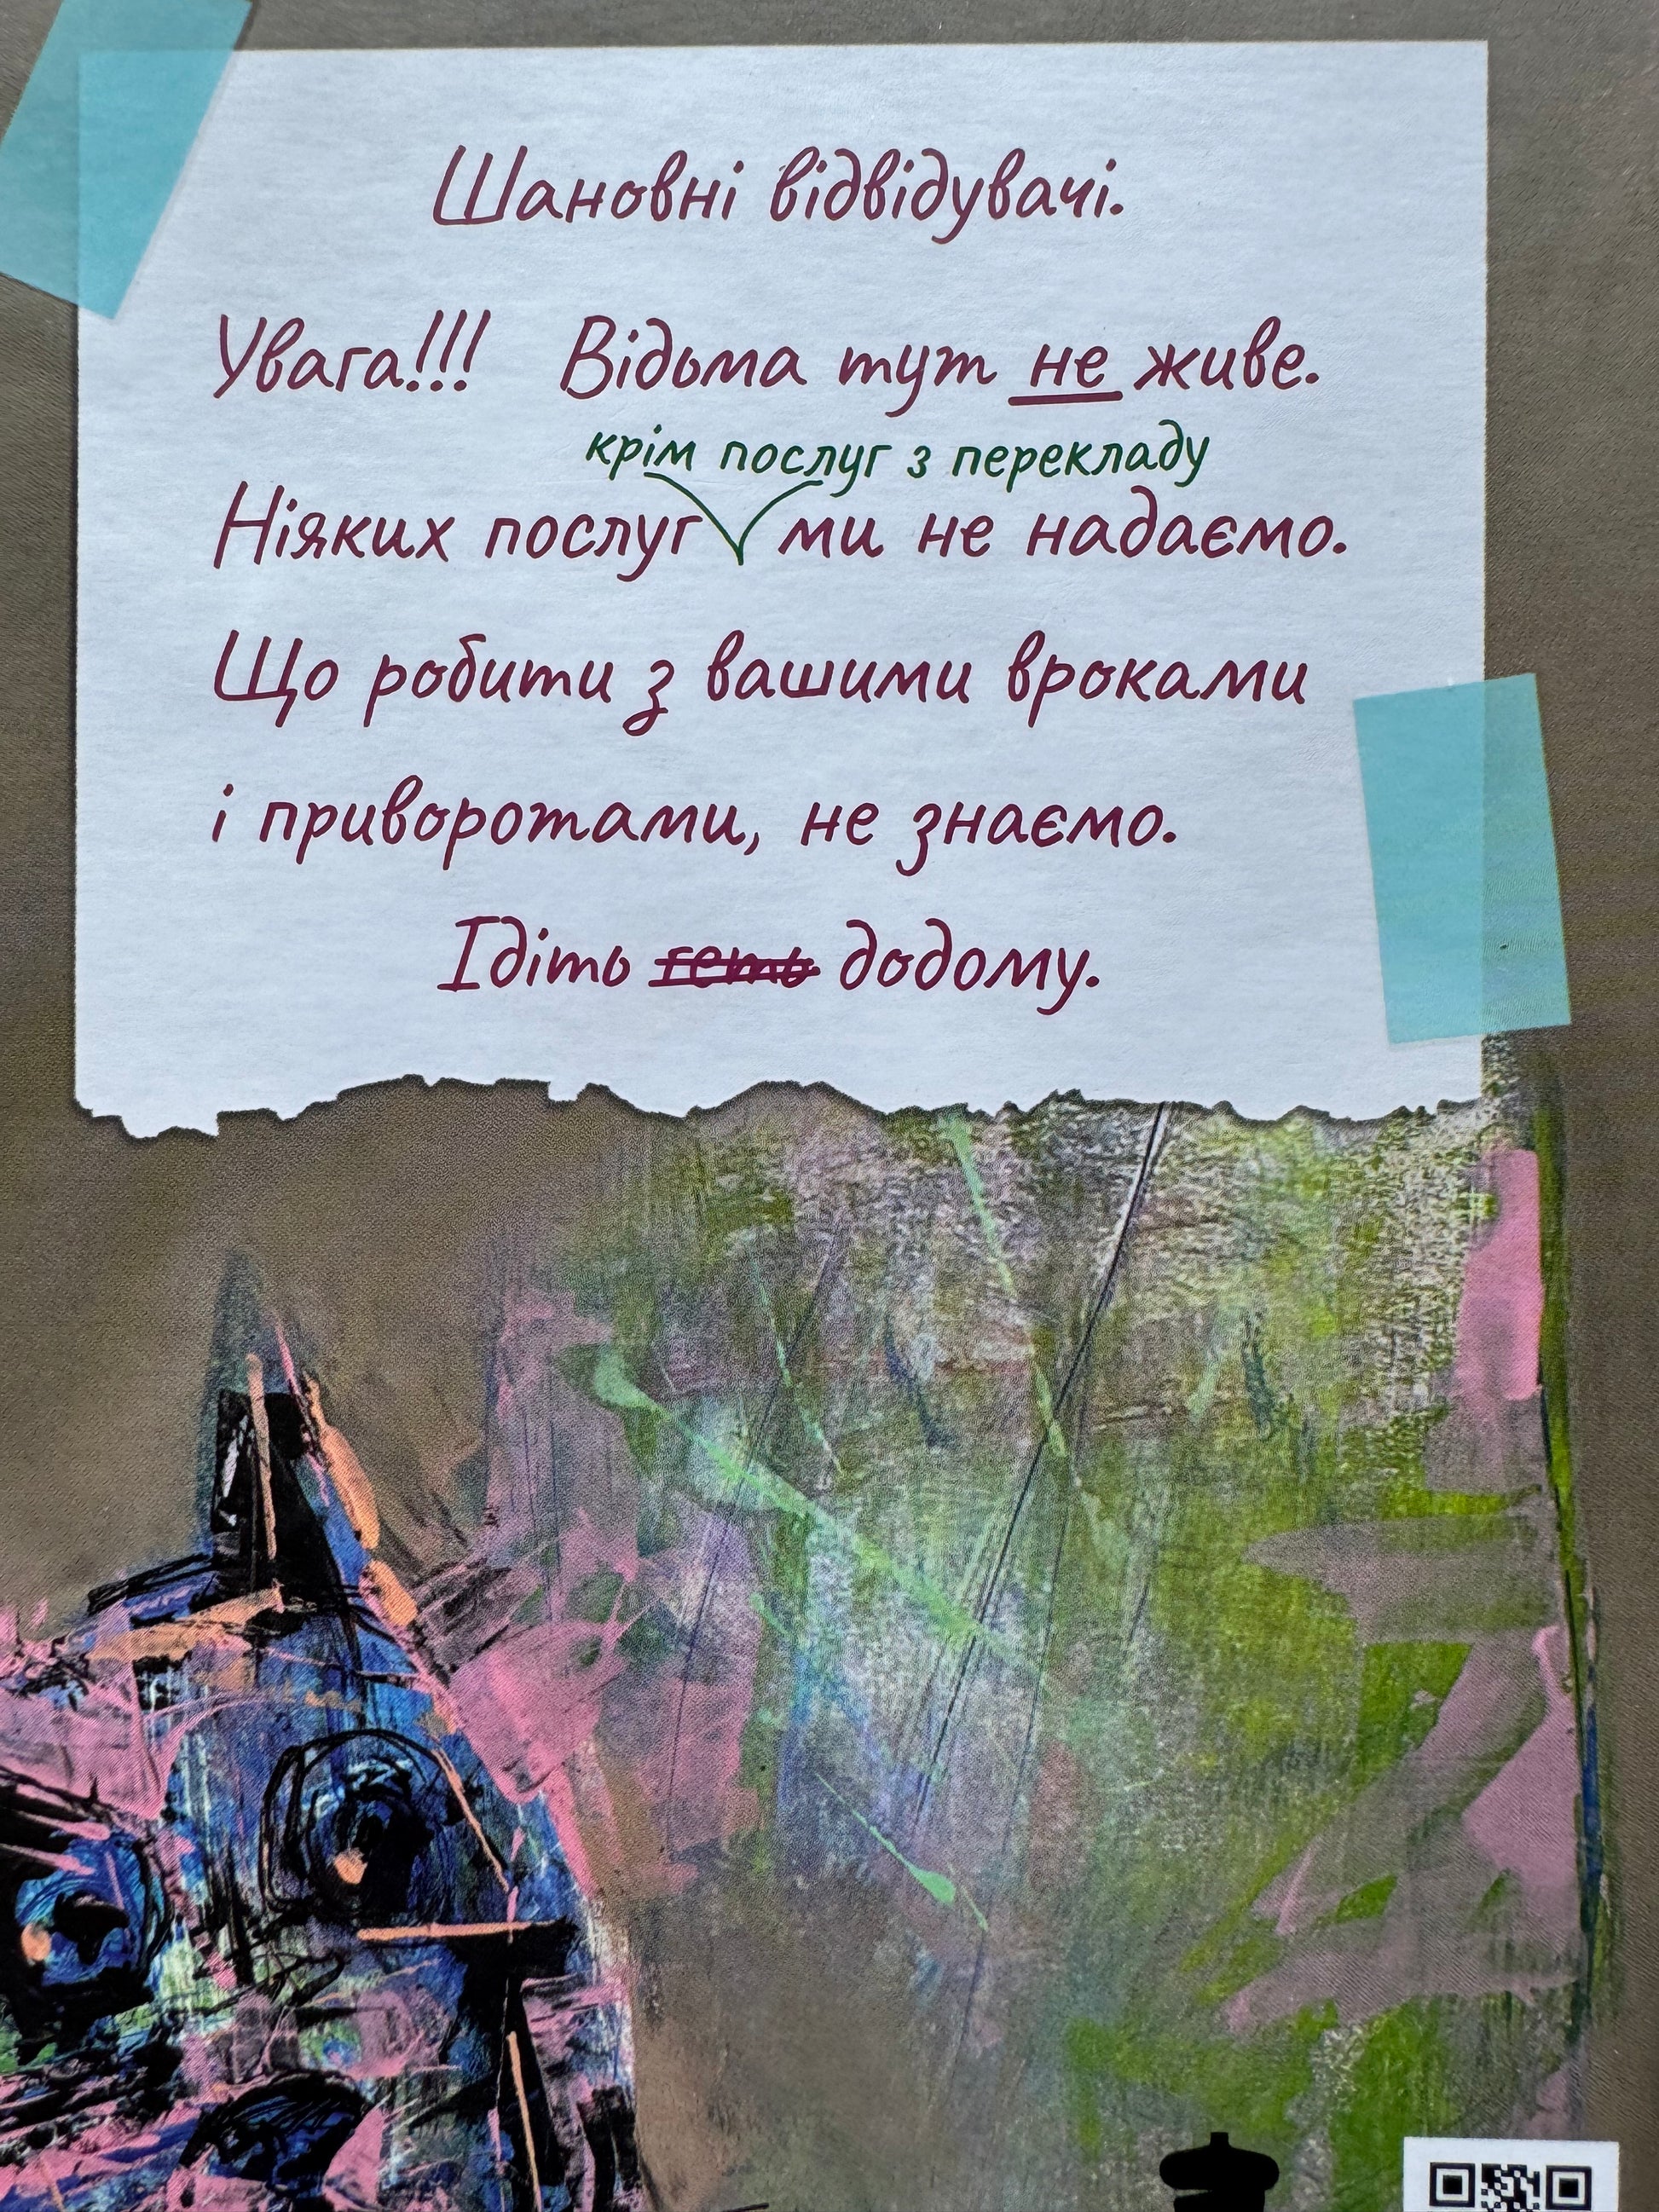 Шановні відвідувачі.
Увага!!! Відьма тут не живе.
крім послуг з перекладу
Ніяких послуг ми не надаємо.
Що робити з вашими вроками
і приворотами, не знаємо.
Ідіть геть додому.